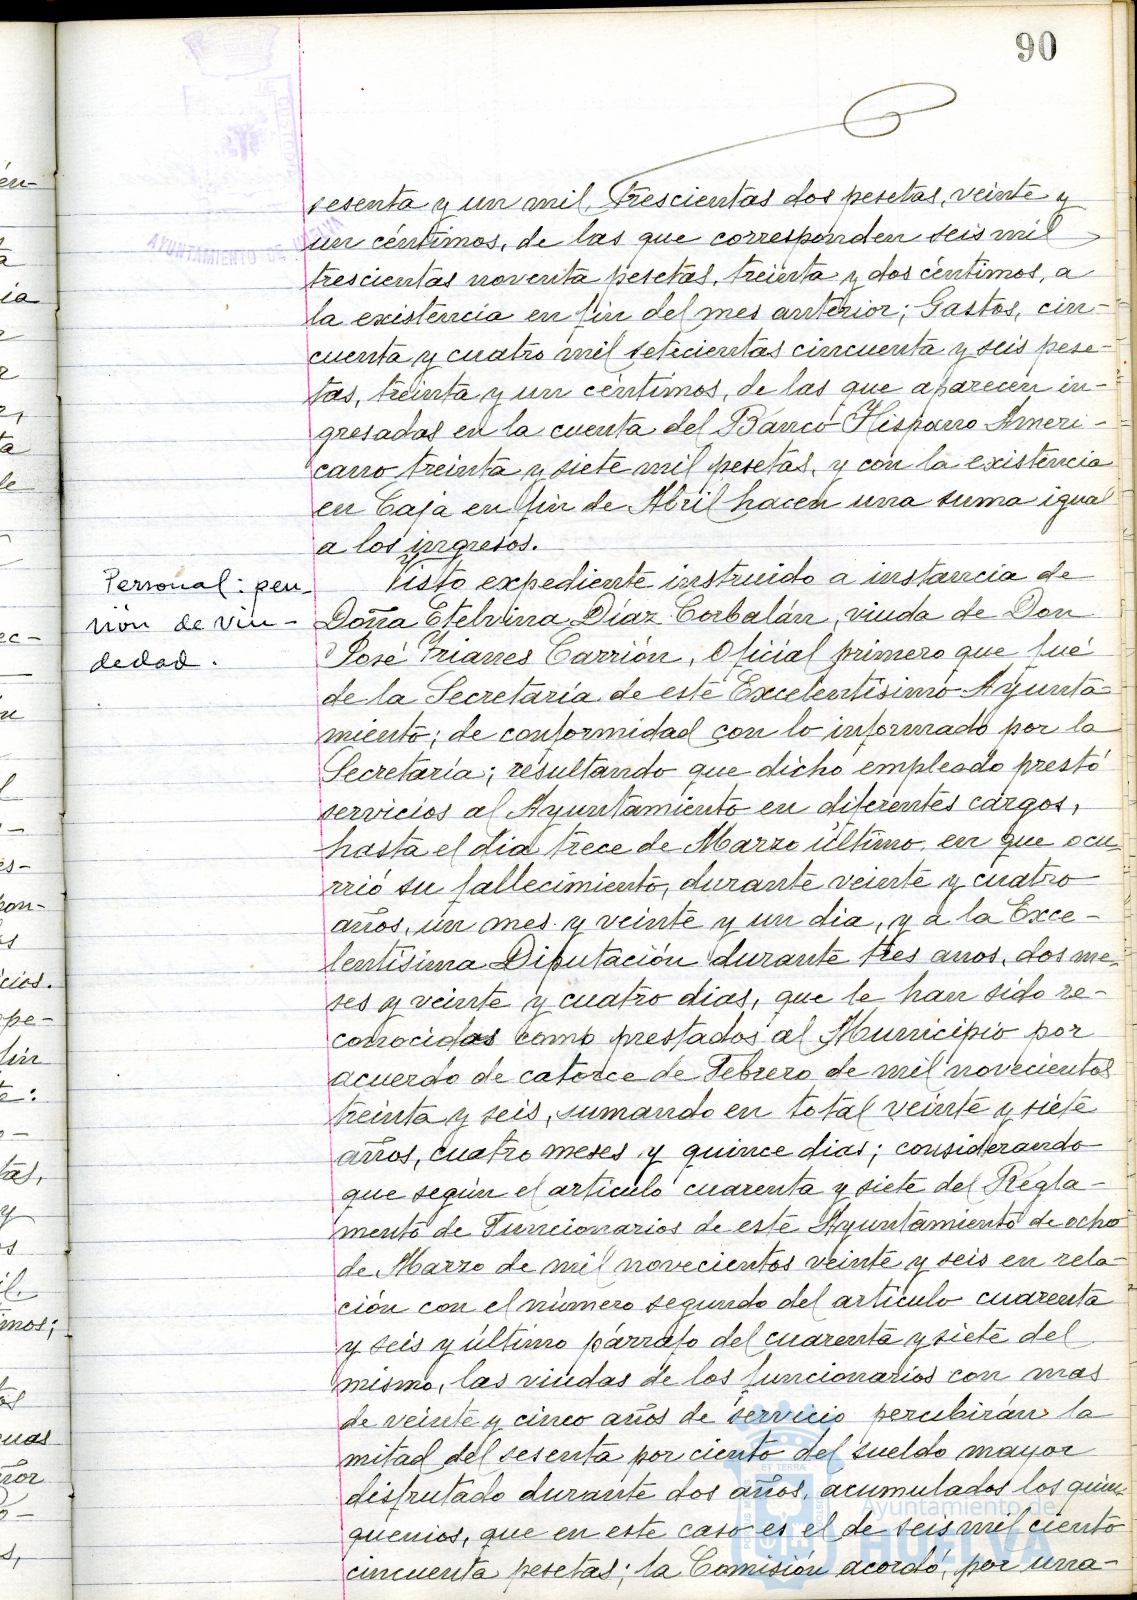 90
sesenta y un mil trescientas dos pesetas, veinte y
un céntimos, de las que corresponden seis mil
trescientas noventa pesetas, treinta y dos céntimos, a
la existencia en fin del mes anterior; Gastos, cin-
cuenta y cuatro mil setecientas cincuenta y seis pese-
tas, treinta y un céntimos, de las que aparecen in-
gresadas en la cuenta del Banco Hispano Ameri-
cano treinta y siete mil pesetas, y con la existencia
en Caja en fin de Abril hacen una suma igual
a los ingresos.
Personal: pen-
sión de viu-
dedad.
Visto expediente instruido a instancia de
Doña Etelvina Díaz Corbalán, viuda de Don
José Frianes Carrión, Oficial primero que fué
de la Secretaría de este Excelentísimo Ayunta-
miento; de conformidad con lo informado por la
Secretaría; resultando que dicho empleado prestó
servicios al Ayuntamiento en diferentes cargos,
hasta el dia trece de Marzo último, en que ocu-
rrió su fallecimiento, durante veinte y cuatro
años, un mes y veinte y un dia, y a la Exce-
lentísima Diputación durante tres anos, dos me-
ses y veinte y cuatro dias, que le han sido re-
conocidas como prestados al Municipio por
acuerdo de catorce de Febrero de mil novecientos
treinta y seis, sumando en total veinte y siete
años, cuatro meses y quince dias; considerando
que según el artículo cuarenta y siete del Regla-
mento de Funcionarios de este Ayuntamiento de ocho
de Marzo de mil novecientos veinte y seis en rela-
ción con el número segundo del artículo cuarenta
y seis y último párrafo del cuarenta y siete del
mismo, las viudas de los funcionarios con mas
de veinte y cinco años de servicio percibirán la
mitad del sesenta por ciento del sueldo mayor
disfrutado durante dos años, acumulados los quin-
quenios, que en este caso es el de seis mil ciento
cincuenta pesetas; la Comisión acordó, por una-
Ayuntamiento de
HUELVA